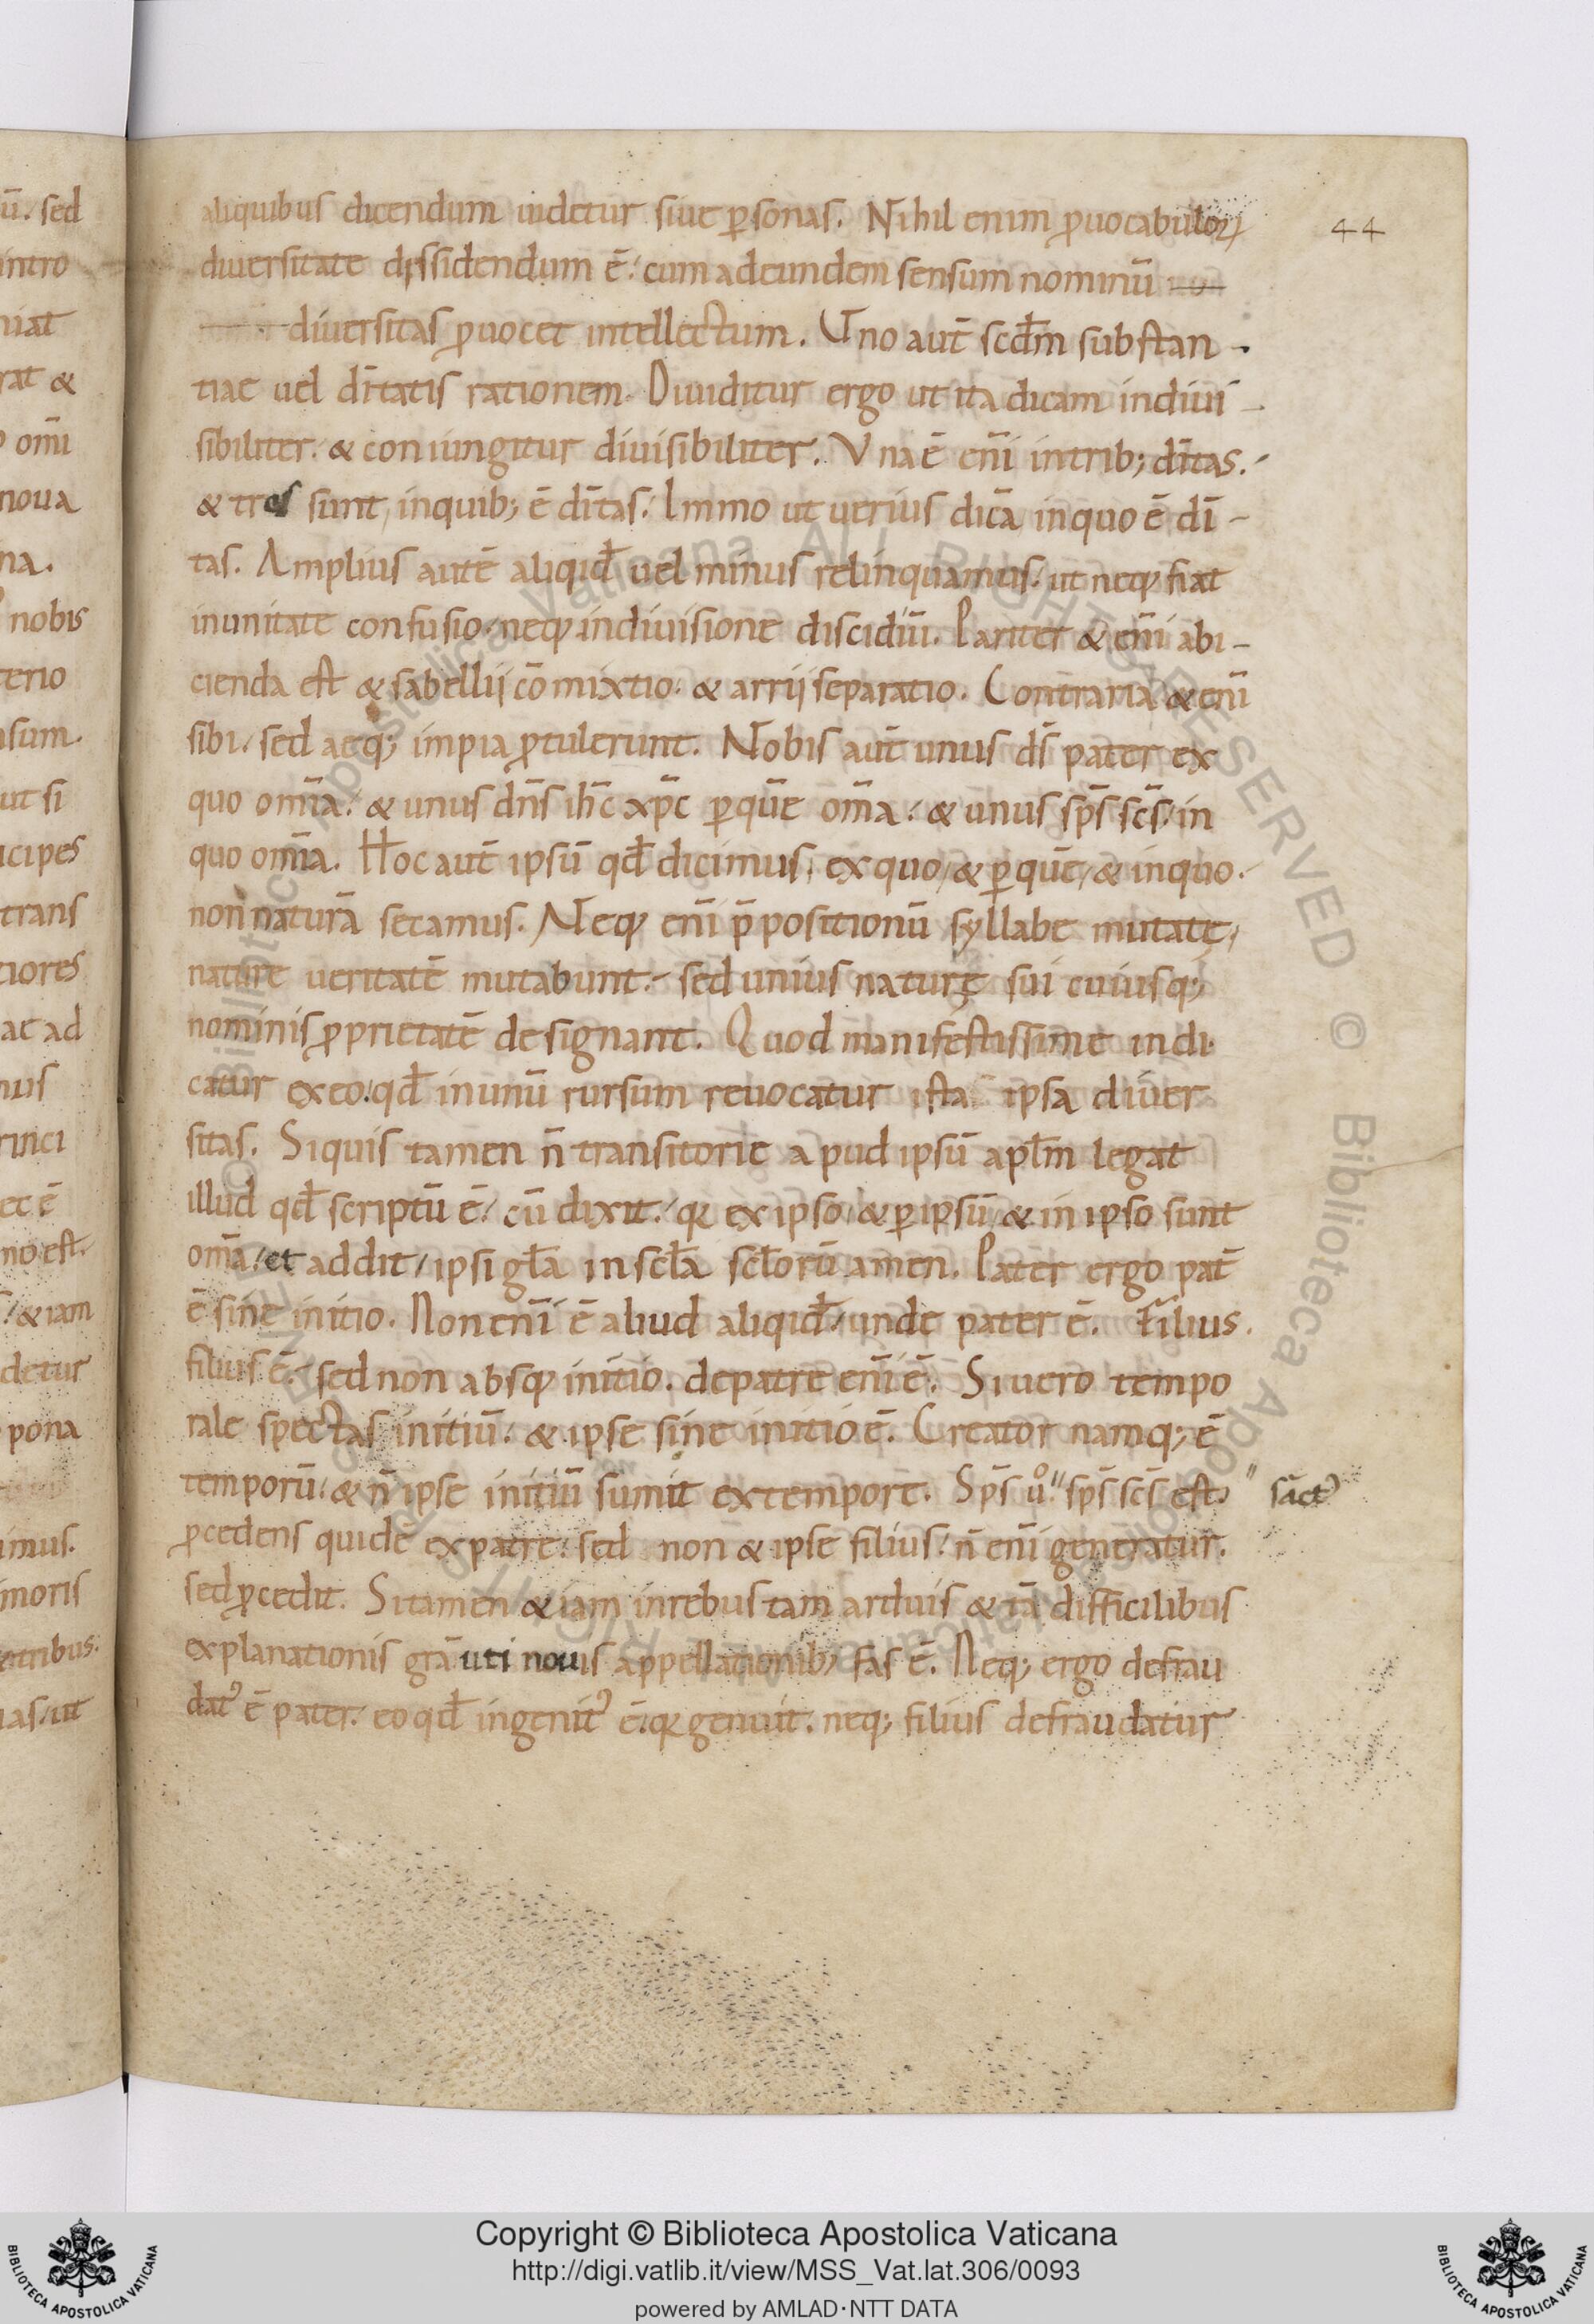 ū. sed
intro
niat
rat &
omī
noua
na.
nobis
terio
nsum.
ut si
icipes
trans
tiores
ac ad
nus
rinci
ec ē
no est.
& iam
detur
pona
imus.
moris
etribus.
as/ut
44
aliquibus dicendum uidetur siue ꝑsonas. Nihil enim ꝓuocabuloꝝ
diuersitate dissidendum ē. cum adeundem sensum nominū
diuersitas ꝓuocet intellectum. Uno aut̄ scd̄m substan-
tiae uel dn̄tatis rationem. Diuiditur ergo ut ita dicam indiui-
sibiliter. & coniungitur diuisibiliter. Vna ē eni̅ intrib; dn̄tas.
& tres sunt inquib; ē dn̄tas. Immo ut uerius dicā inquo ē di̅-
tas. Amplius autē aliqid̄ uel minus relinquamus. ut neqꝫ fiat
inunitate confusio. neqꝫ indiuisione discidiū. Pariter & eni̅ abi-
cienda est & sabellij cōmixtio. & arrij separatio. Contraria & eni̅
sibi. sed aeq; impia ꝓtulerunt. Nobis aut̄ unus ds̄ pater ex
quo om̄ia. & unus dn̄s ih̄c xp̄c ꝑquē om̄a. & unus sp̄s sc̄s. in
quo om̄ia. Hoc aut̄ ipsū qd̄ dicimus. ex quo. & ꝑquē. & inquo.
non naturā secamus. Neqꝫ eni̅ p̄positionū syllabe mutate,
nature ueritatē mutabunt. sed unius naturę sui cuiusq;
nominis ꝓprietatē designant. Quod manifestissime indi
catur ex eo. qd̄ inunū rursum reuocatur ista ipsa diuer
sitas. Siquis tamen n̄ transitorie apud ipsū apl̄m legat
illud qd̄ scriptū ē. cū dixit. qꝛ ex ipso. & ꝑipsū. & in ipso sunt
om̄a. et addit. ipsi gl̄a in scl̄a scl̄orū amen. Pater ergo pat̄
ē sine initio. Non eni̅ ē aliud aliqid̄. unde pater ē. Filius.
filius ē. sed non absqꝫ initio. depatre eni̅ ē. Si uero tempo
rale spectas initiū. & ipse sine initio ē. Creator namq; ē
temporū. & n̄ ipse initiū sumit ex tempore. Sp̄s uͦ. sp̄s sc̄s est. sāctꝰ
ꝓcedens quidē ex patre. sed non & ipse filius. n̄ eni̅ generatur.
sed ꝓcedit. Si tamen & iam inrebus tam arduis & tā difficilibus
explanationis grā uti nouis appellationib; fas ē. Neq; ergo defrau
datꝰ ē pater. eo qd̄ ingenitꝰ ē. qꝛ genuit. neq; filius defraudatur
Copyright © Biblioteca Apostolica Vaticana
http://digi.vatlib.it/view/MSS_Vat.lat.306/0093
powered by AMLAD·NTT DATA
BIBLIOTECA APOSTOLICA VATICANA
BIBLIOTECA APOSTOLICA VATICANA